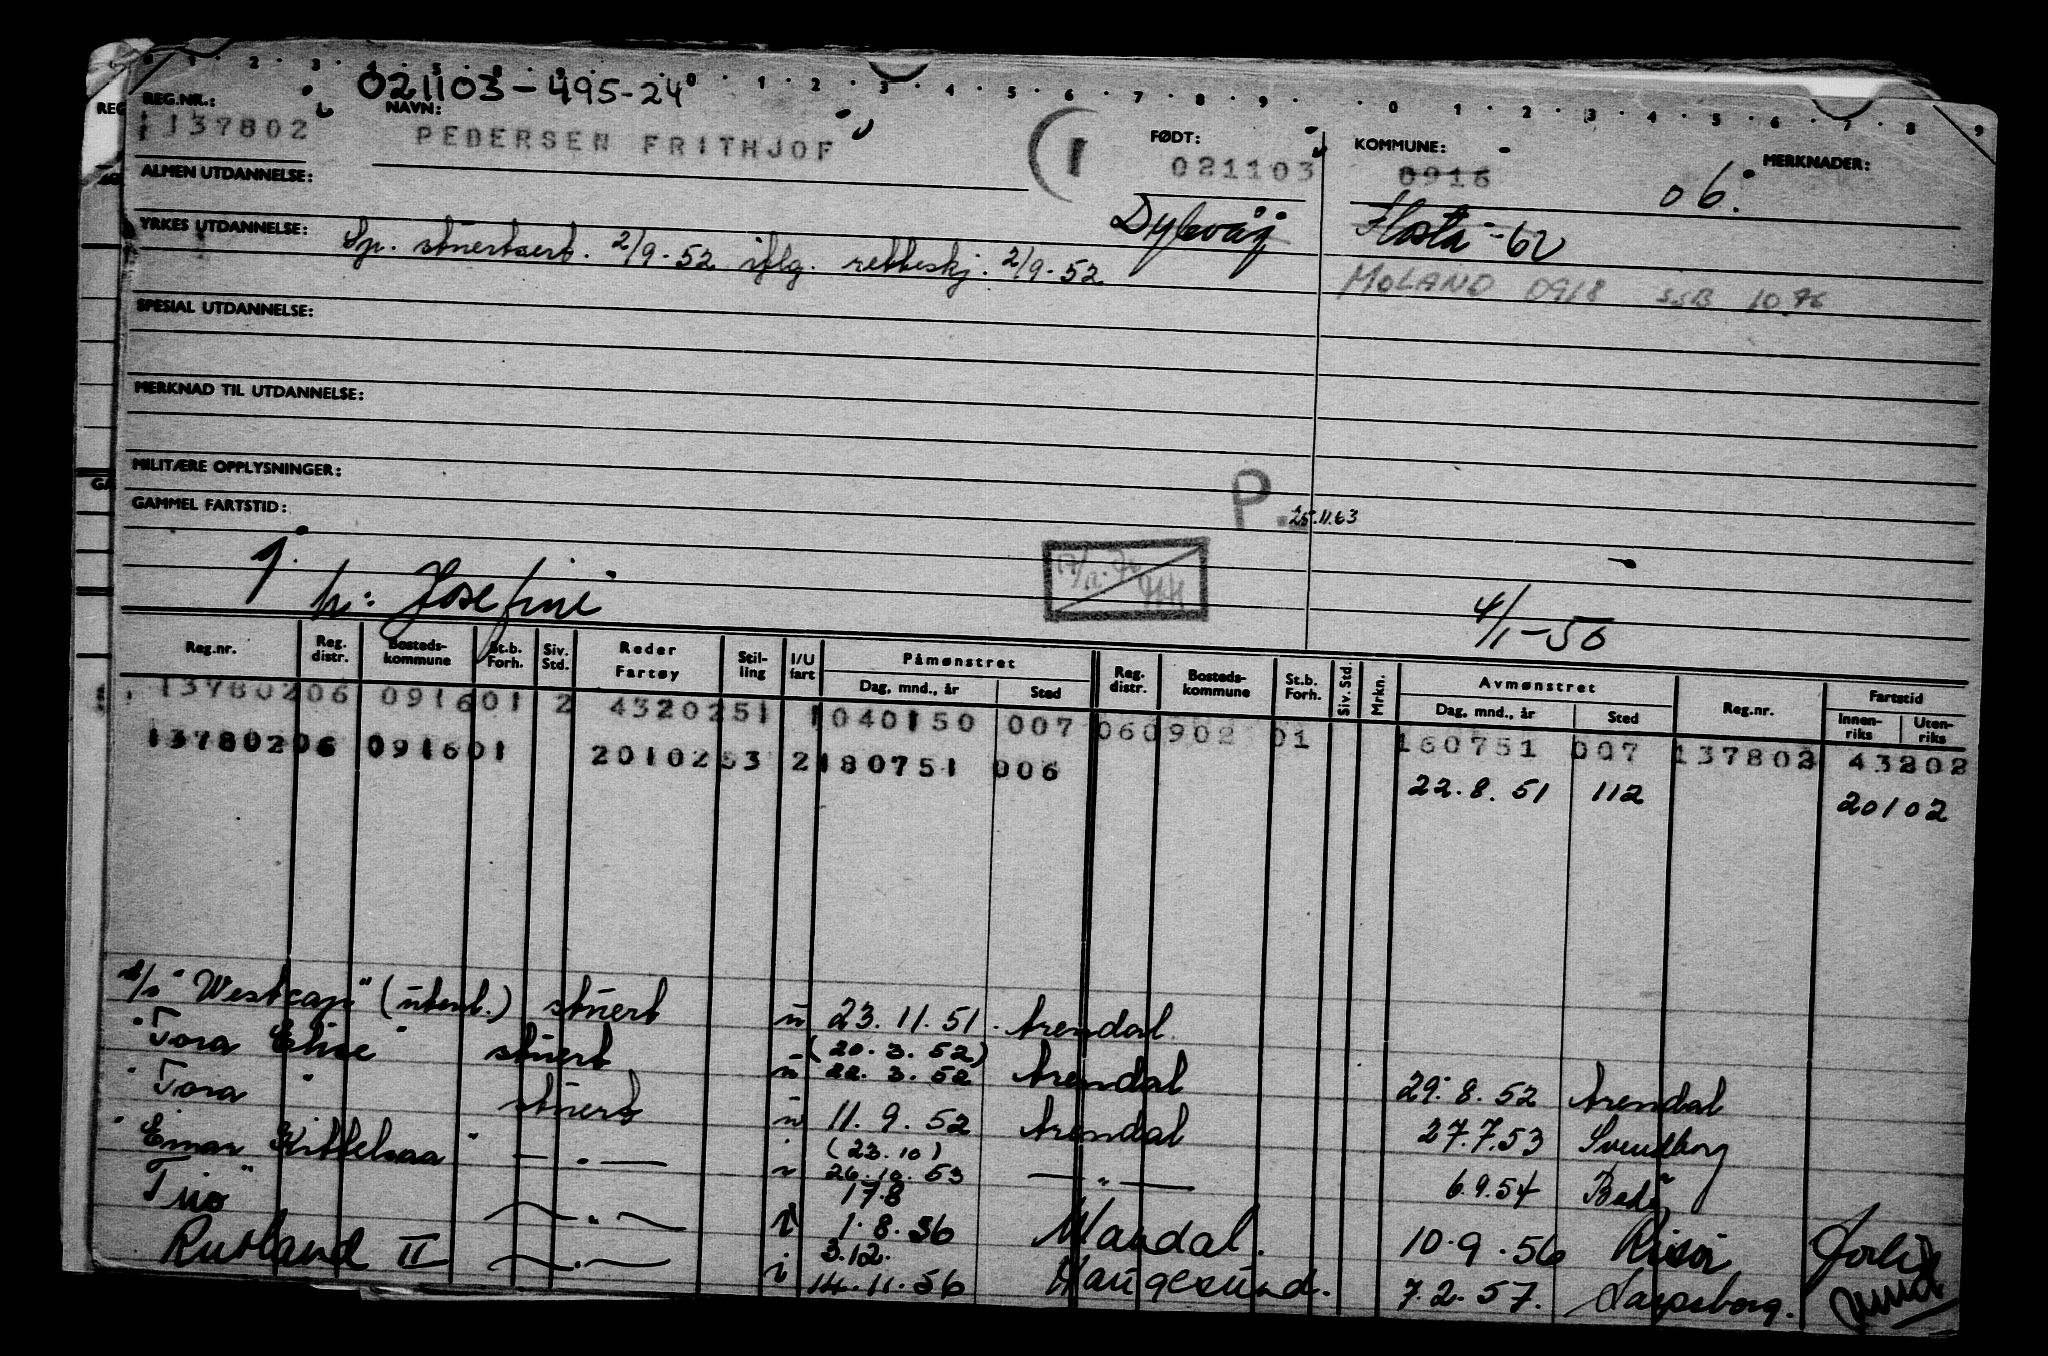 021103-495-24
REG.NR.: NAVN: FØDT: KOMMUNE: MERKNADER:
137802 PEDERSEN FRITHJOF 1 021103 0916 06.
ALMEN UTDANNELSE:
Dybvåg Flosta -62
YRKES UTDANNELSE: Sp. stuertsert. 2/9-52 iflg. retteskj. 2/9-52
MOLAND 0918 SSB 10.76
SPESIAL UTDANNELSE:
MERKNAD TIL UTDANNELSE:
MILITÆRE OPPLYSNINGER:
GAMMEL FARTSTID:
P. 25.11.63
g. h: Josefine 4/1-56
Reg.nr. Reg. distr. Bosteds-kommune St.b. Forh. Siv. Std. Reder Fartøy Stil-ling I/U fart Påmønstret Dag, mnd., år Sted Reg. distr. Bosteds-kommune St.b. Forh. Siv. Std. Mrkn. Avmønstret Dag, mnd., år Sted Reg.nr. Fartstid Innen-riks Uten-riks
13780206 091601 2 4320251 1040150 007 060902 01 160751 007 137802 43202
13780206 091601 2010253 2180751 006 22.8.51 112 20102
"Westcap" (utenl.) stuert u 23.11.51. Arendal
(20.3.52)
"Tora Elise" stuert u 22.3.52 Arendal 29.8.52 Arendal
"Tora" stuert u 11.9.52 Arendal 27.7.53 Svendborg
(23.10)
"Einar Kittelsaa" — " — 26.10.53 — " — 6.9.54 Bodø
17.8
"Trio" — " — i 1.8.56 Mandal. 10.9.56 Risør
3.12.
Rutland II — " — i 14.11.56 Haugesund. 7.2.57. Sarpsborg.